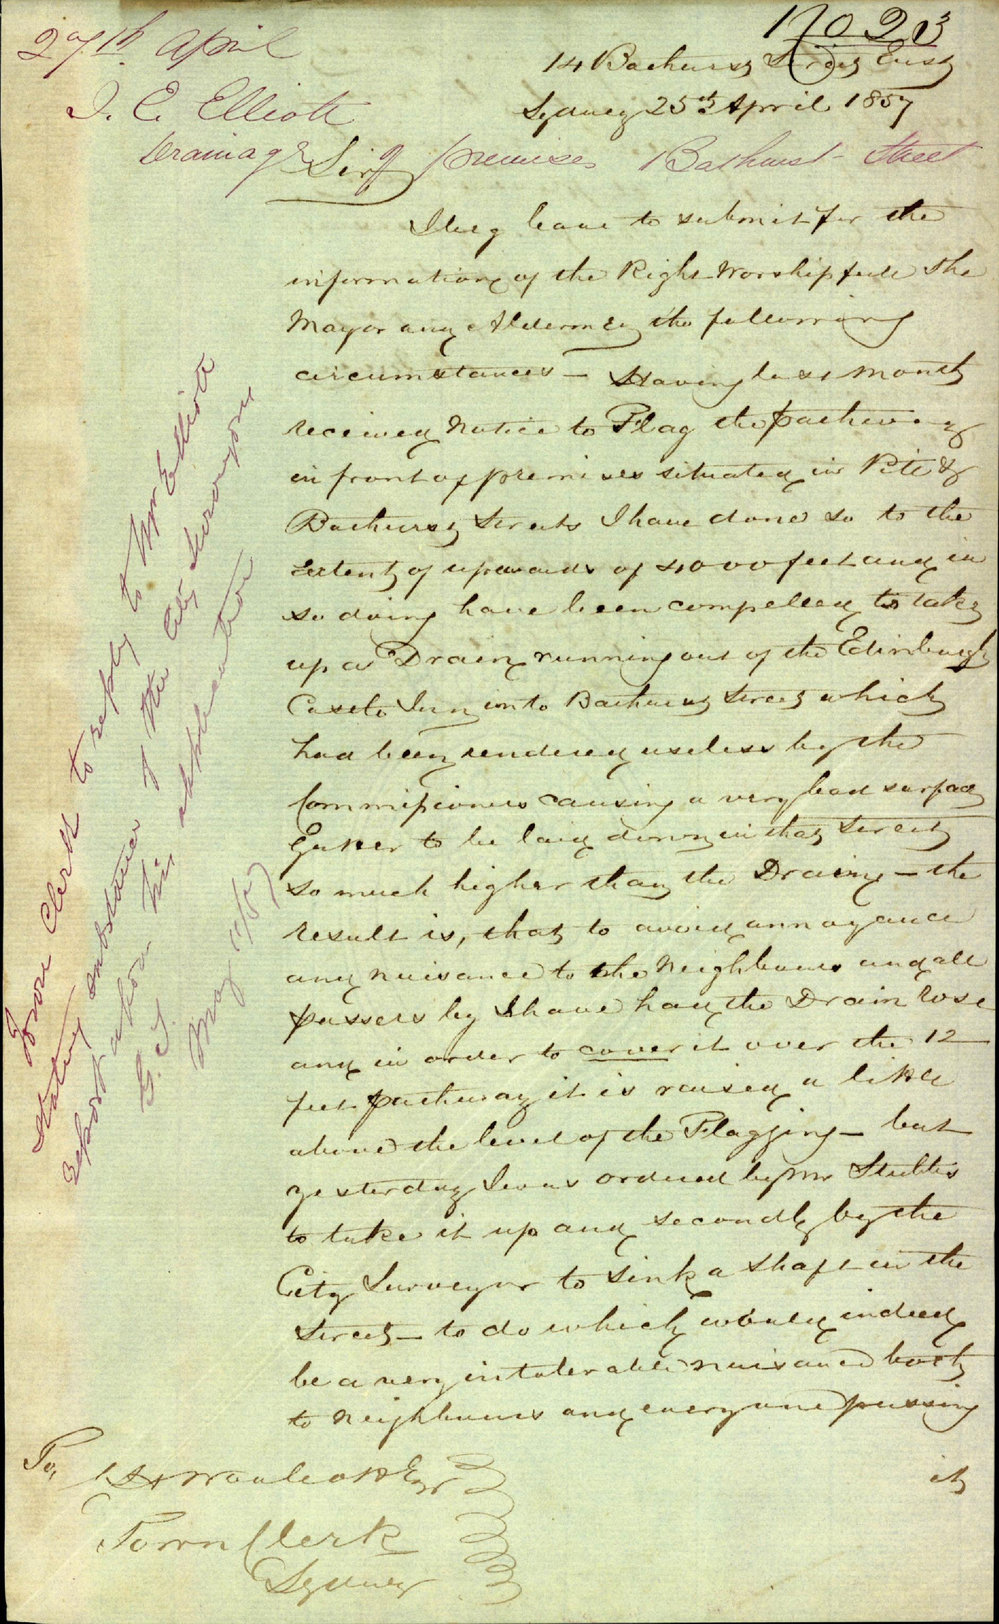 27th April
J. E. Elliott
Drainage of premises Bathurst Street
14 Bathurst Street East
Sydney 25th April 1857
Sir,
I beg leave to submit for the
information of the Right Worshipfull the
Mayor and Aldermen the following
circumstances — Having last month
received Notice to Flag the pathway
in front of premises situated in Pitt &
Bathurst Streets I have done so to the
extent of upwards of 4000 feet and in
so doing have been compelled to take
up a Drain running out of the Edinburgh
Castle Inn into Bathurst Street which
had been rendered useless by the
Commissioners causing a very bad surface
Gutter to be laid down in that Street
so much higher than the Drain — the
result is, that to avoid annoyance
and nuisance to the Neighbours and all
passers by I have had the Drain rose
and in order to cover it over the 12
feet pathway it is raised a little
above the level of the Flagging — but
yesterday I was ordered by Mr Stubbs
to take it up and secondly by the
City Surveyor to sink a shaft in the
Street — to do which would indeed
be a very intolerable nuisance both
to neighbours and every one passing
it
To,
Woolcott Esqr
Town Clerk
Sydney
Town Clerk to reply to Mr Elliott
stating substance of the City Surveyors
report upon his application
G. T.
May 11/57